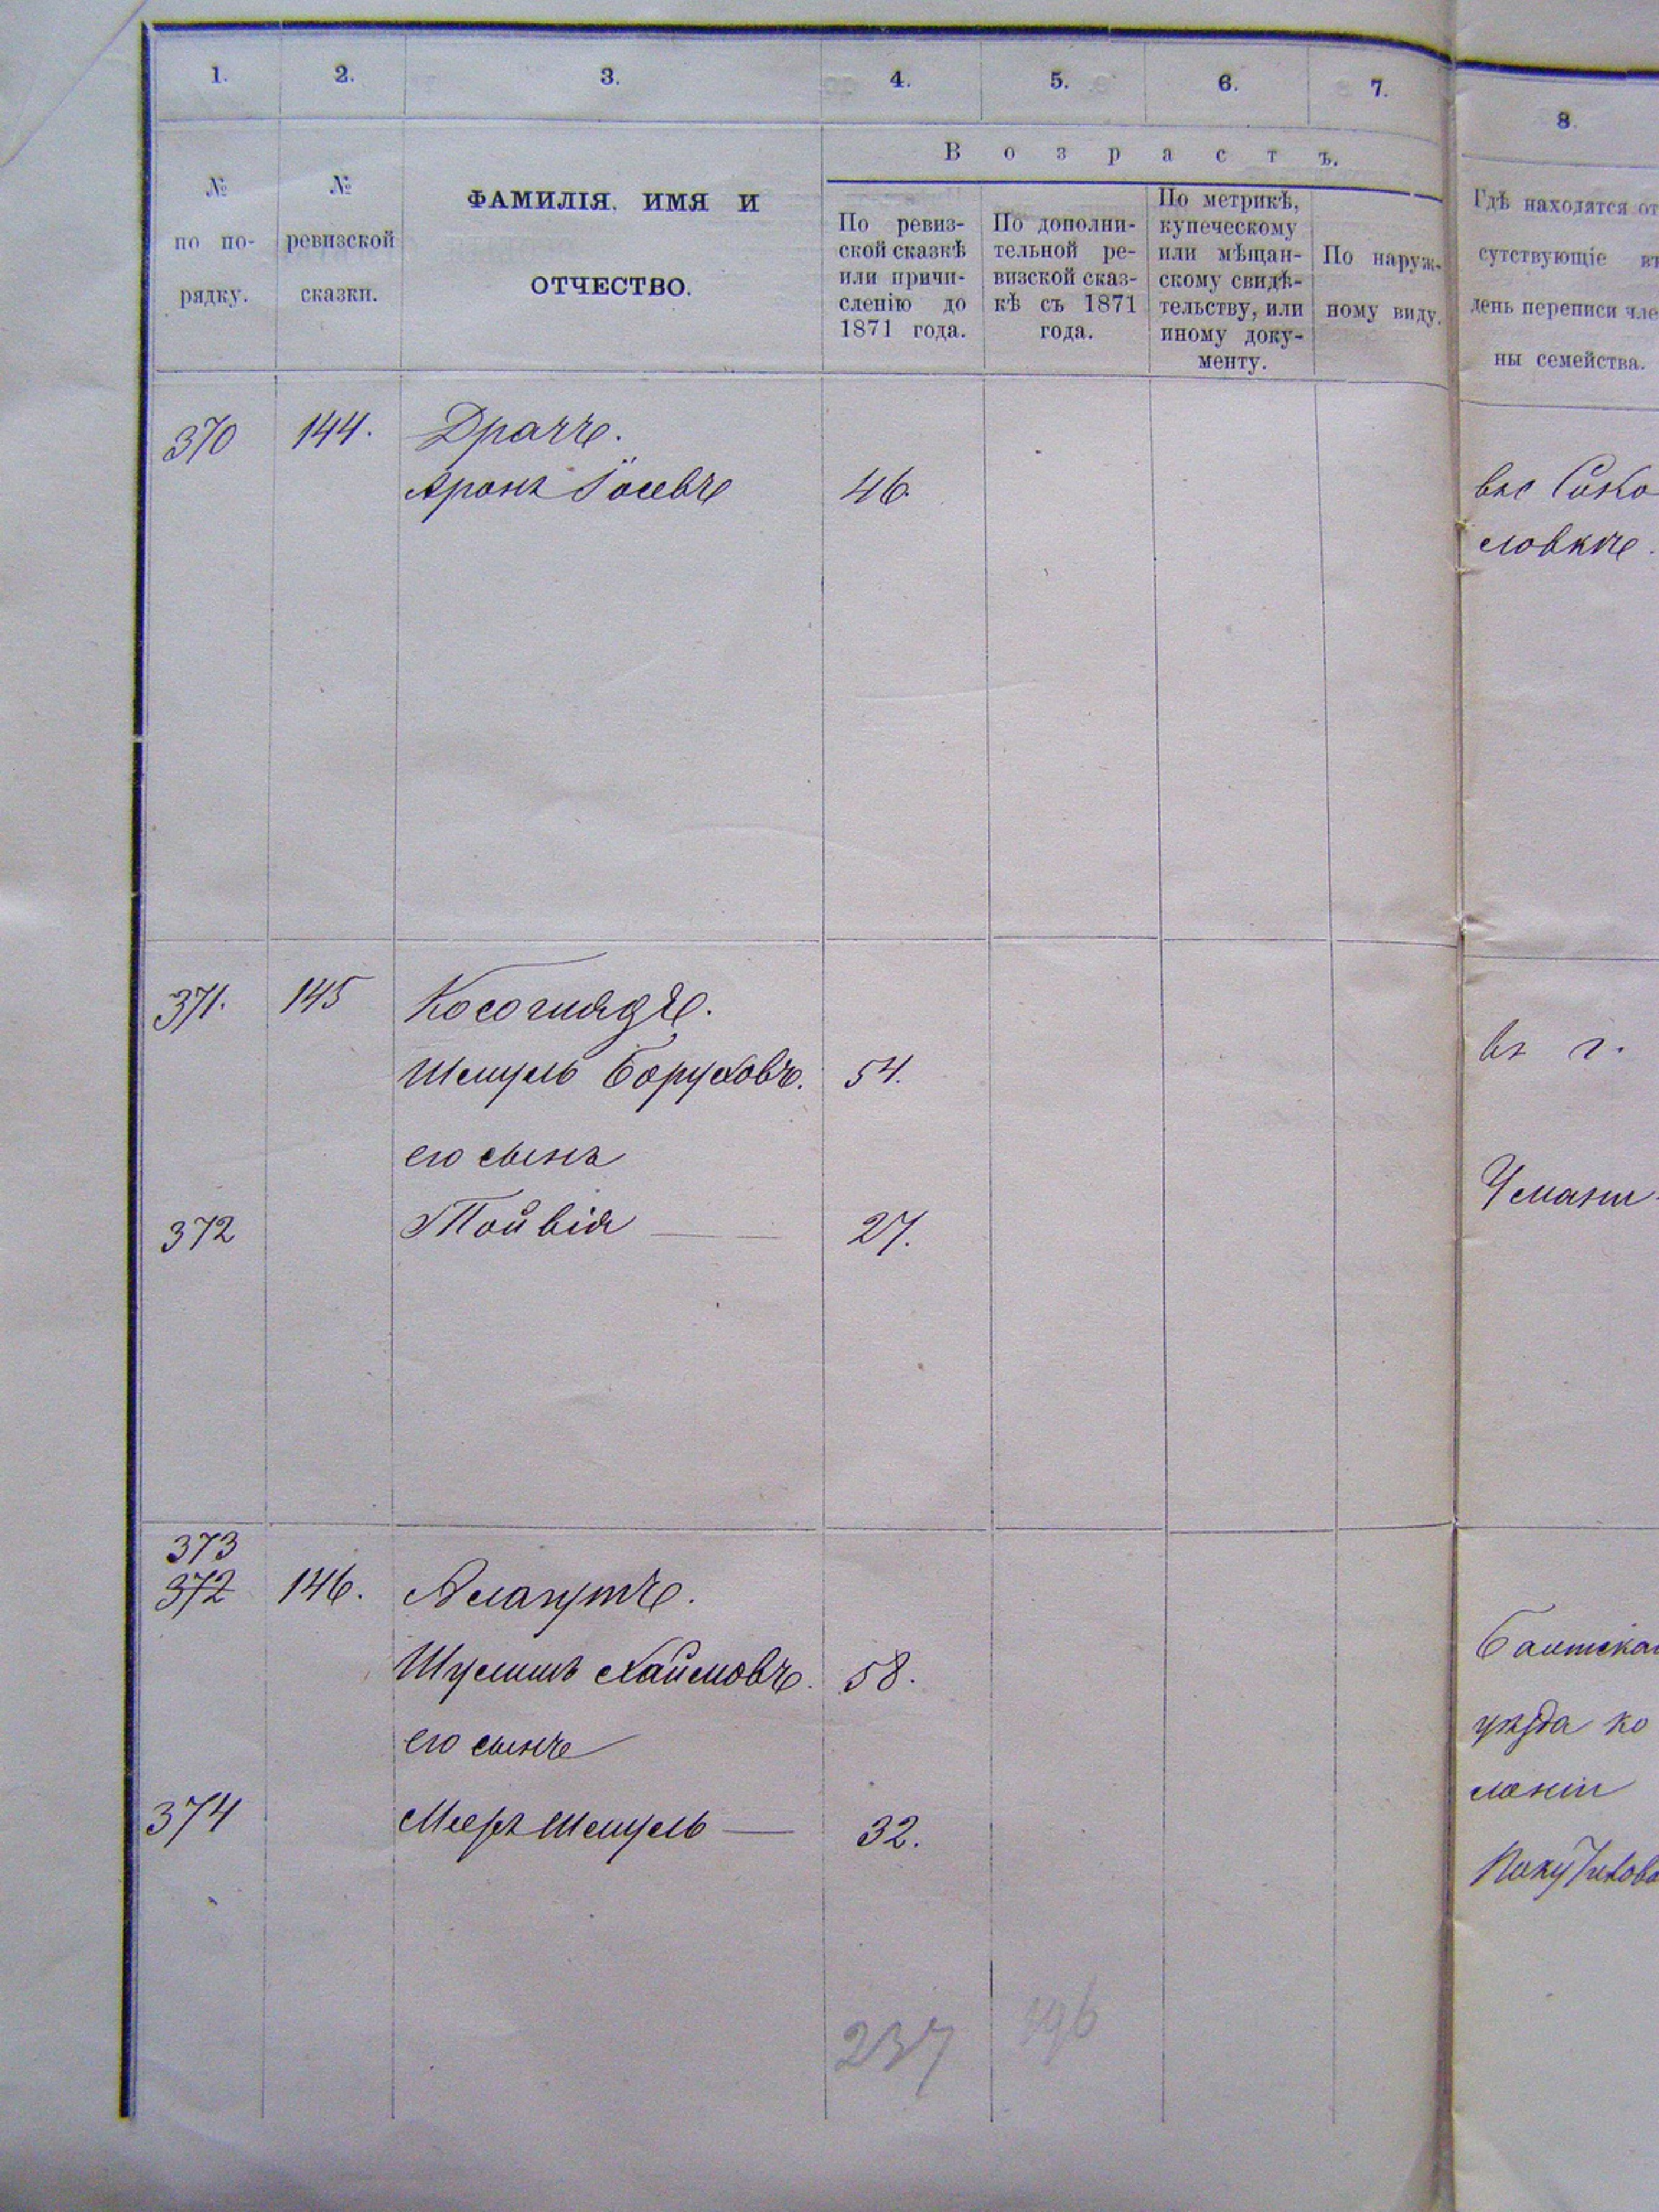 1. 2. 3. 4. 5. 6. 7. 8
В о з р а с т ъ.
№
по по-
рядку.
№
ревизской
сказки.
ФАМИЛІЯ, ИМЯ И
ОТЧЕСТВО.
По ревиз-
ской сказкѣ
или причи-
сленію до
1871 года.
По дополни-
тельной ре-
визской сказ-
кѣ съ 1871
года.
По метрикѣ,
купеческому
или мѣщан-
скому свидѣ-
тельству, или
иному доку-
менту.
По наруж-
ному виду.
Гдѣ находятся от
сутствующіе въ
день переписи чле
ны семейства.
370 144. Драчъ.
Аронъ Іосевъ 46.
въ с Соко
ловкѣ.
371. 145 Косоглядъ.
Шмуль Боруховъ. 54.
въ г.
его сынъ
Умани
372 Тойвія — 27.
373
372 146. Алакутъ.
Шулимъ Хаимовъ. 58.
Балтскаг
его сынъ
уѣзда ко
лоніи
374 Мееръ Шмуль — 32.
237 196